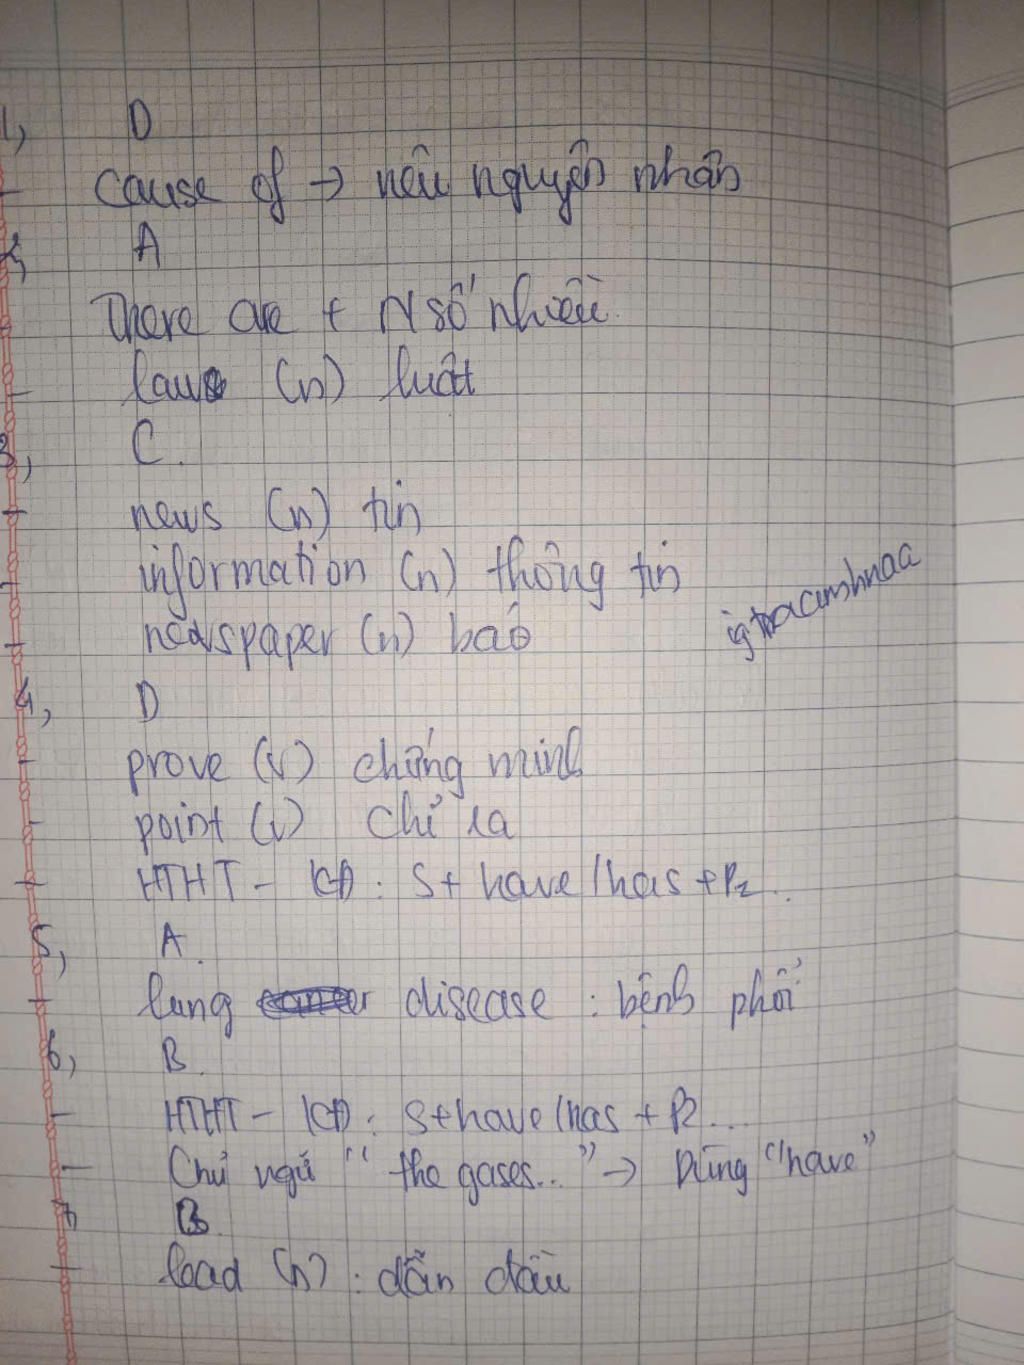 1, D
- cause of → nêu nguyên nhân
2, A
- There are + N số nhiều.
- law (n) luật
3, C.
+ news (n) tin
- information (n) thông tin
+ newspaper (n) báo
4, D
- prove (v) chứng minh
- point (v) chỉ ra
- HTHT - KĐ: S + have/has + P2...
5, A.
+ lung disease : bệnh phổi
6, B.
- HTHT - KĐ: S + have/has + P2...
- Chủ ngữ "the gases..." → Dùng "have"
7, B.
+ lead (n) : dẫn đầu